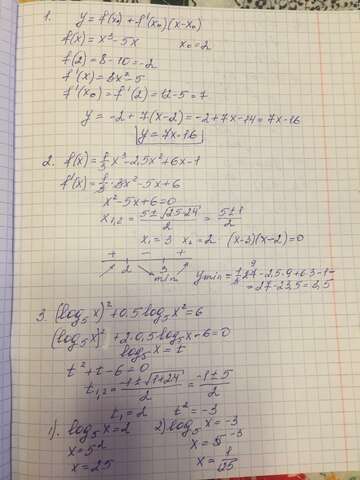 1. y = f(x₀) + f'(x₀)(x-x₀)
f(x) = x³-5x x₀ = 2
f(2) = 8-10 = -2
f'(x) = 3x²-5
f'(x₀) = f'(2) = 12-5 = 7
y = -2 + 7(x-2) = -2+7x-14 = 7x-16
y = 7x-16
2. f(x) = 1/3 x³ - 2,5x² + 6x - 1
f'(x) = 1/3 · 3x² - 5x + 6
x² - 5x + 6 = 0
x₁,₂ = (5 ± √25-24)/2 = (5±1)/2
x₁ = 3 x₂ = 2 (x-3)(x-2) = 0
+ - +
2 3
min
y min = 1/3 27 - 2,5·9 + 6·3 - 1 =
= 27 - 23,5 = 3,5
3. (log₅ x)² + 0,5 log₅ x² = 6
(log₅ x)² + 2·0,5 log₅ x - 6 = 0
log₅ x = t
t² + t - 6 = 0
t₁,₂ = (-1 ± √1+24)/2 = (-1±5)/2
t₁ = 2 t² = -3
1). log₅ x = 2 2) log₅ x = -3
x = 5² x = 5⁻³
x = 25 x = 1/125